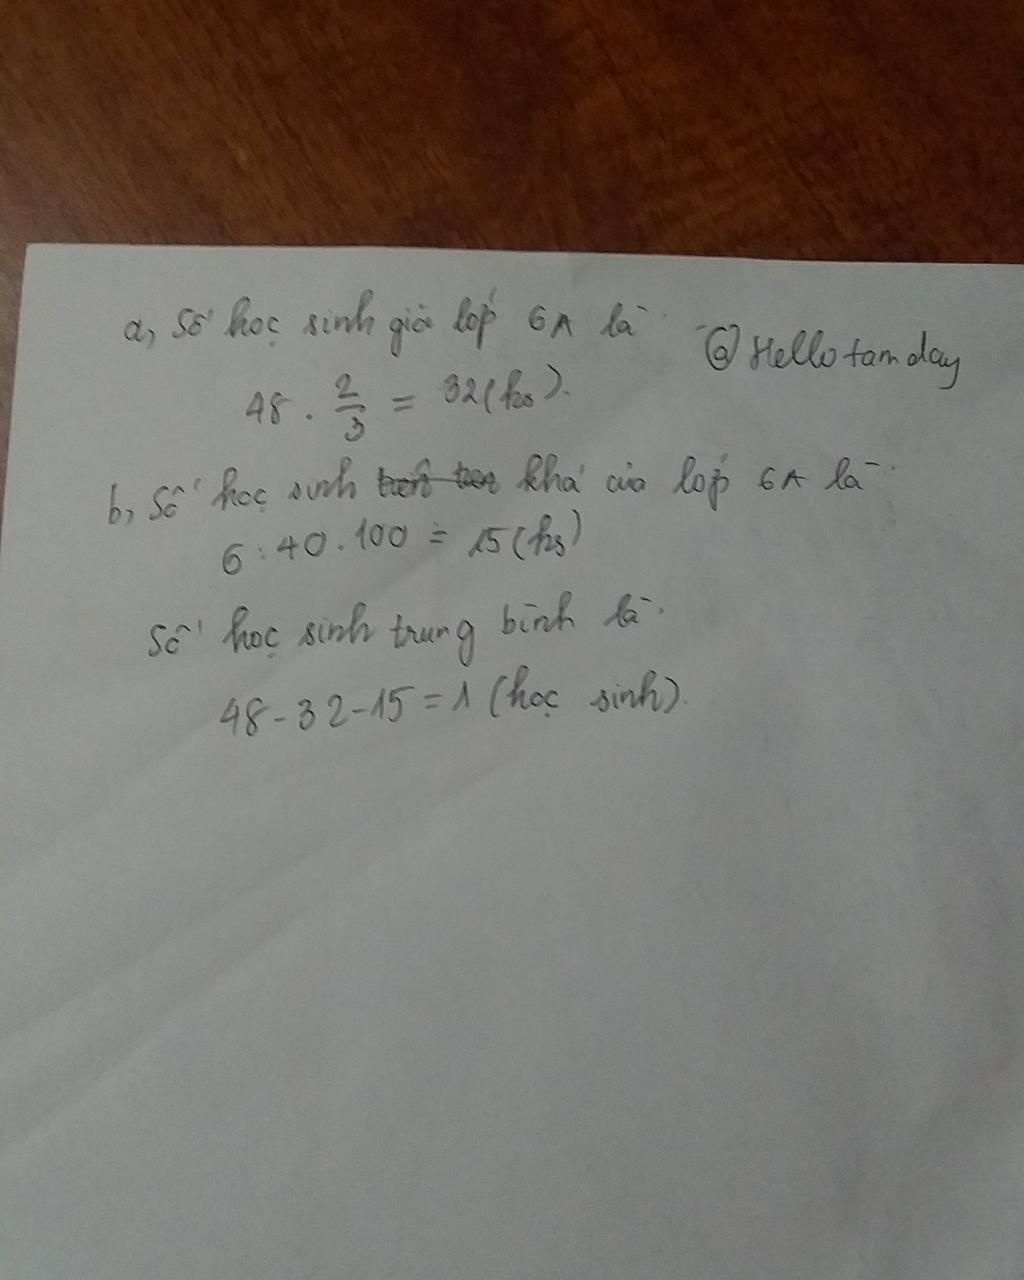 a, Số học sinh giỏi lớp 6A là
@Hellotamday
48 . 2/3 = 32 (hs).
b, Số học sinh khá của lớp 6A là
6 : 40 . 100 = 15 (hs)
Số học sinh trung bình là
48 - 32 - 15 = 1 (học sinh).